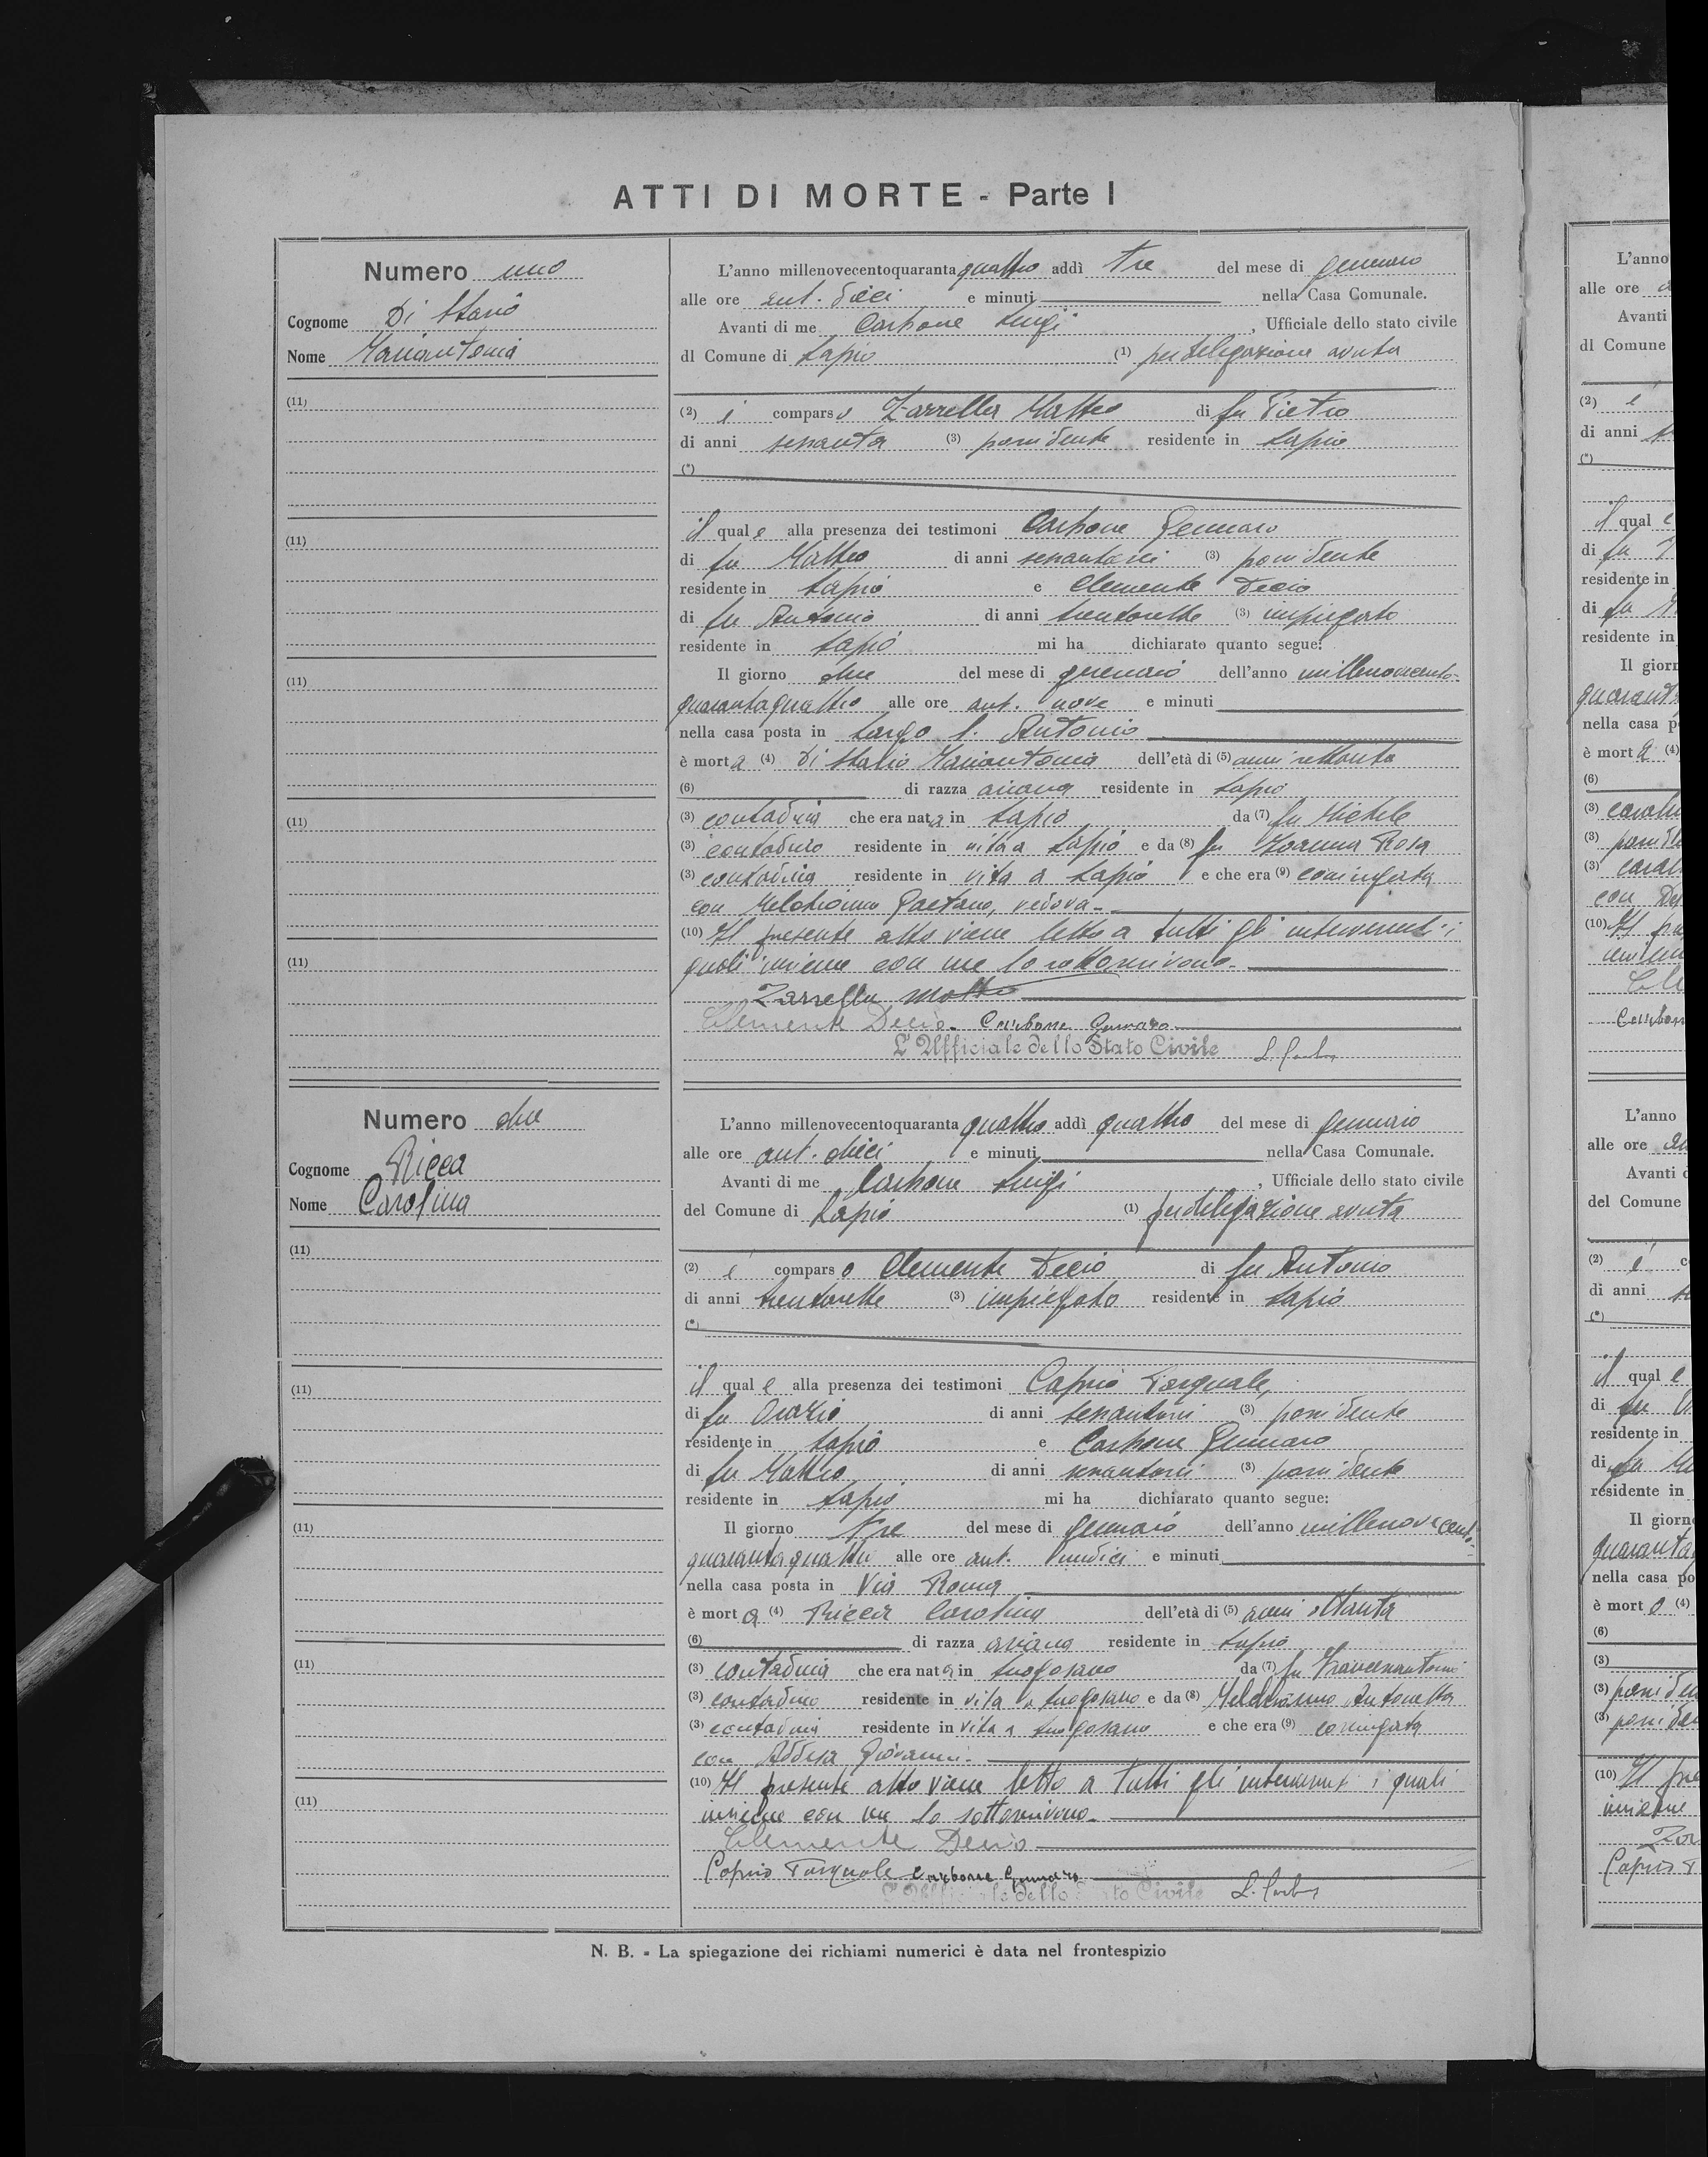 ATTI DI MORTE - Parte I
Numero uno
Cognome Di Stasio
Nome Mariantonia
(11)
(11)
(11)
(11)
(11)
L'anno millenovecentoquaranta quattro addì tre del mese di gennaio
alle ore ant. dieci e minuti nella Casa Comunale.
Avanti di me Carbone Luigi, Ufficiale dello stato civile
dl Comune di Lapio (1) per delegazione avuta
(2) è comparso Zarrella Matteo di fu Pietro
di anni sessanta (3) possidente residente in Lapio
(*)
il quale alla presenza dei testimoni Carbone Gennaro
di fu Matteo di anni sessantasei (3) possidente
residente in Lapio e Clemente Decio
di fu Antonio di anni trentasette (3) impiegato
residente in Lapio mi ha dichiarato quanto segue:
Il giorno due del mese di gennaio dell'anno millenovecento-
quarantaquattro alle ore ant. nove e minuti
nella casa posta in Largo S. Antonio
è morta (4) Di Stasio Mariantonia dell'età di (5) anni settanta
(6) di razza ariana residente in Lapio
(3) contadina che era nata in Lapio da (7) fu Michele
(3) contadino residente in vita a Lapio e da (8) fu Rosa
(3) contadina residente in vita a Lapio e che era (9) coniugata
con Melchionna Gaetano, vedova.-
(10) Il presente atto viene letto a tutti gli intervenuti i
quali insieme con me lo sottoscrivono.-
Zarrella Matteo
Clemente Decio. Carbone Gennaro
L'Ufficiale dello Stato Civile L. Carbone
Numero due
Cognome Ricca
Nome Carolina
(11)
(11)
(11)
(11)
(11)
L'anno millenovecentoquaranta quattro addì quattro del mese di gennaio
alle ore ant. dieci e minuti nella Casa Comunale.
Avanti di me Carbone Luigi, Ufficiale dello stato civile
del Comune di Lapio (1) per delegazione avuta
(2) è comparso Clemente Decio di fu Antonio
di anni trentasette (3) impiegato residente in Lapio
(*)
il quale alla presenza dei testimoni Caprio Pasquale,
di fu Orazio di anni (3) possidente
residente in Lapio e Carbone Gennaro
di fu Matteo di anni sessantasei (3) possidente
residente in Lapio mi ha dichiarato quanto segue:
Il giorno tre del mese di gennaio dell'anno millenovecento-
quarantaquattro alle ore ant. undici e minuti
nella casa posta in Via Roma
è morta (4) Ricca Carolina dell'età di (5) anni ottanta
(6) di razza ariana residente in Lapio
(3) contadina che era nata in Luogosano da (7) fu Francesantonio
(3) contadino residente in vita a Luogosano e da (8) Melchionno Antonella
(3) contadina residente in vita a Luogosano e che era (9) coniugata
con Addesa Giovanni.-
(10) Il presente atto viene letto a tutti gli intervenuti i quali
insieme con me lo sottoscrivono.-
Clemente Decio
Caprio Pasquale Carbone Gennaro
L'Ufficiale dello Stato Civile L. Carbone
N. B. - La spiegazione dei richiami numerici è data nel frontespizio
L'anno
alle ore
Avanti
dl Comune
(2) è
di anni
(*)
il quale
di fu
residente in
di fu
residente in
Il giorn
quarant
nella casa p
è morta (4)
(6)
(3)
(3)
(3)
con
(10) Il
Carbon
L'anno
alle ore
Avanti d
del Comune
(2) è c
di anni
(*)
il quale
di fu
residente in
di fu
residente in
Il giorn
quaranta
nella casa po
è morto (4)
(6)
(3)
(3)
(3)
(10) Il pre
insieme
Zar
Caprio P